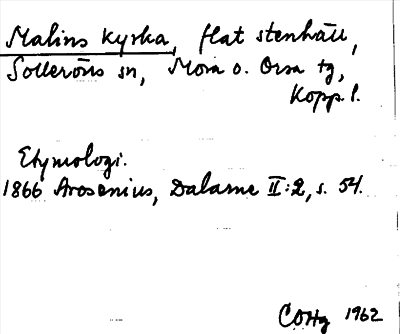 Malins kyrka, flat stenhäll,
Solleröns sn, Mora o. Orsa tg,
Kopp. l.
Etymologi.
1866 Arosenius, Dalarne II:2, s. 54.
COHg 1962